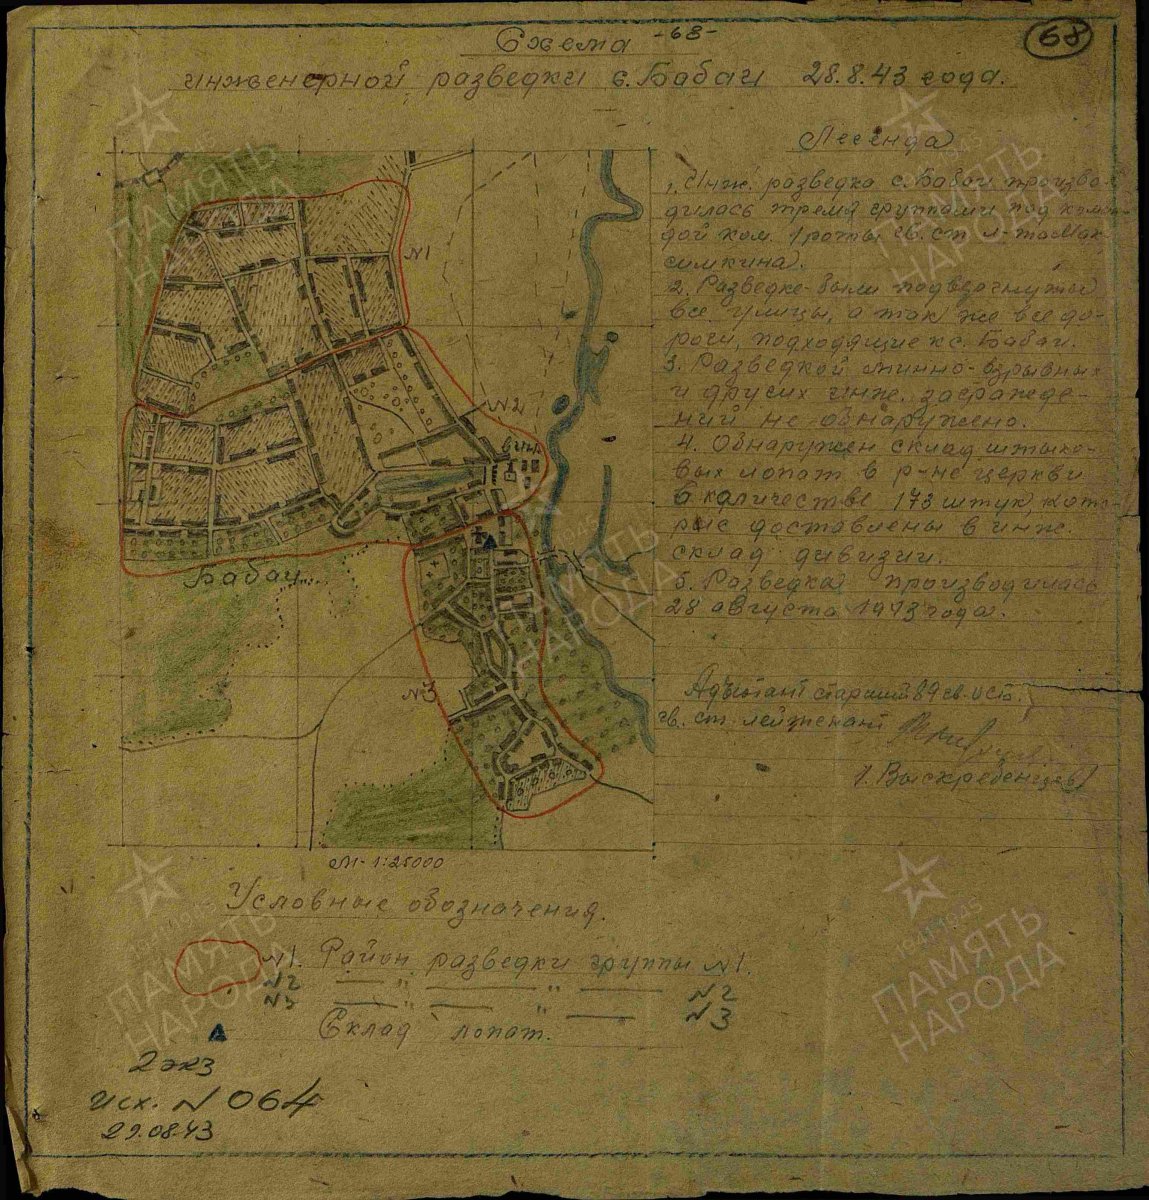 68
-68-
Схема
инженерной разведки с. Бабаи 28.8.43 года.
Легенда
1. Инж. разведка с. Бабаи произво-
дилась тремя группами под коман-
дой ком. 1 роты гв. ст. л-та Мак
симкина.
2. Разведке были подвергнуты
все улицы, а так же все до-
роги, подходящие к с. Бабаи.
3. Разведкой минно-взрывных
и других инж. загражде-
ний не обнаружено.
4. Обнаружен склад штыко-
вых лопат в р-не церкви
в количестве 173 штук, кото-
рые доставлены в инж.
склад дивизии.
5. Разведка производилась
28 августа 1943 года.
Адъютант старший 89 гв. ОСБ.
гв. ст. лейтенант
/. Выскребенцев/
N1
N2
N3
Бабаи
М-1:25000
Условные обозначения.
N1. Район разведки группы N1.
N2 — " — " — N2
N3 — " — " — N3
Склад лопат.
2 экз
исх. N 064
29.08.43
1941-1945
ПАМЯТЬ
НАРОДА